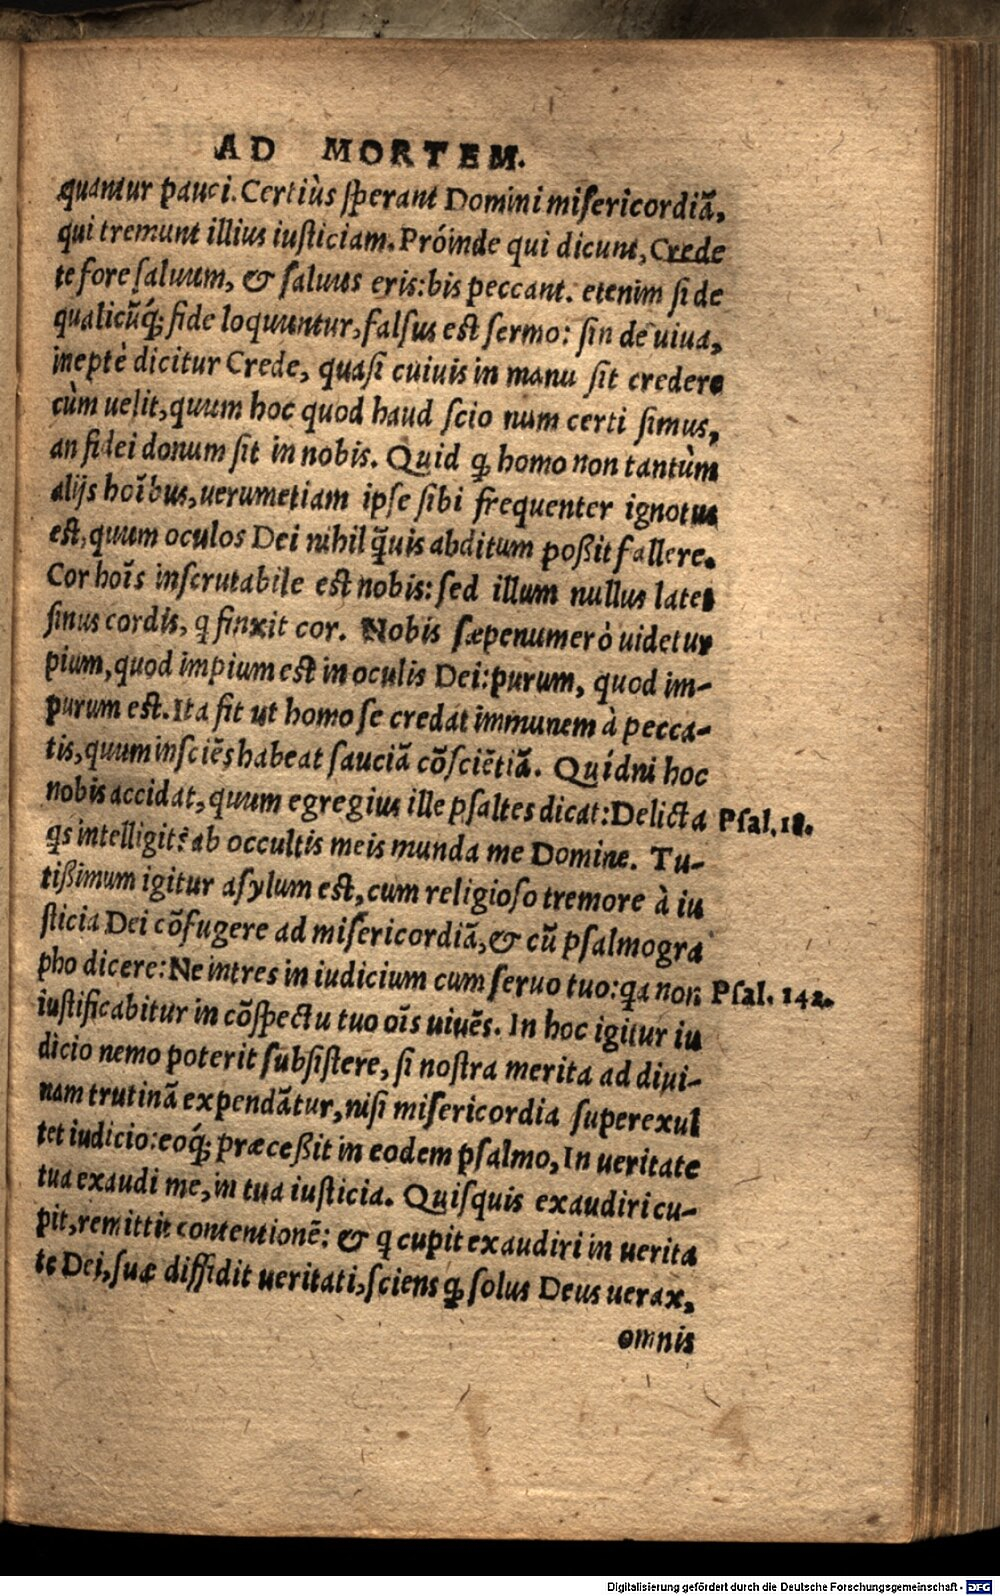 AD MORTEM.
quantur pauci. Certiùs sperant Domini misericordiã,
qui tremunt illius iusticiam. Próinde qui dicunt, Crede
te fore saluum, & saluus eris: bis peccant. etenim si de
qualicũq; fide loquuntur, falsus est sermo: sin de uiua,
ineptè dicitur Crede, quasi cuiuis in manu sit credere
cùm uelit, quum hoc quod haud scio num certi simus,
an fidei donum sit in nobis. Quid ꝙ homo non tantùm
alijs hoĩbus, uerumetiam ipse sibi frequenter ignotus
est, quum oculos Dei nihil q̃uis abditum poßit fallere.
Cor hoĩs inscrutabile est nobis: sed illum nullus latet
sinus cordis, q finxit cor. Nobis sæpenumerò uidetur
pium, quod impium est in oculis Dei: purum, quod im-
purum est. Ita fit ut homo se credat immunem à pecca-
tis, quum insciẽs habeat sauciã cõsciẽtiã. Quídni hoc
nobis accidat, quum egregius ille psaltes dicat: Delicta
Psal. 18.
qs intelligit? ab occultis meis munda me Domine. Tu-
tißimum igitur asylum est, cum religioso tremore à iu
sticia Dei cõfugere ad misericordiã, & cũ psalmogra
pho dicere: Ne intres in iudicium cum seruo tuo: qa non
Psal. 142.
iustificabitur in cõspectu tuo oĩs uiuẽs. In hoc igitur iu
dicio nemo poterit subsistere, si nostra merita ad diui-
nam trutinã expendãtur, nisi misericordia superexul
tet iudicio: eoq́; præceßit in eodem psalmo, In ueritate
tua exaudi me, in tua iusticia. Quisquis exaudiri cu-
pit, remittit contentionẽ: & q cupit exaudiri in uerita
te Dei, suæ diffidit ueritati, sciens ꝙ solus Deus uerax,
omnis
Digitalisierung gefördert durch die Deutsche Forschungsgemeinschaft - DFG